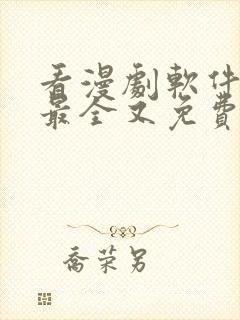 看漫劇軟件
最全又免費
喬榮另